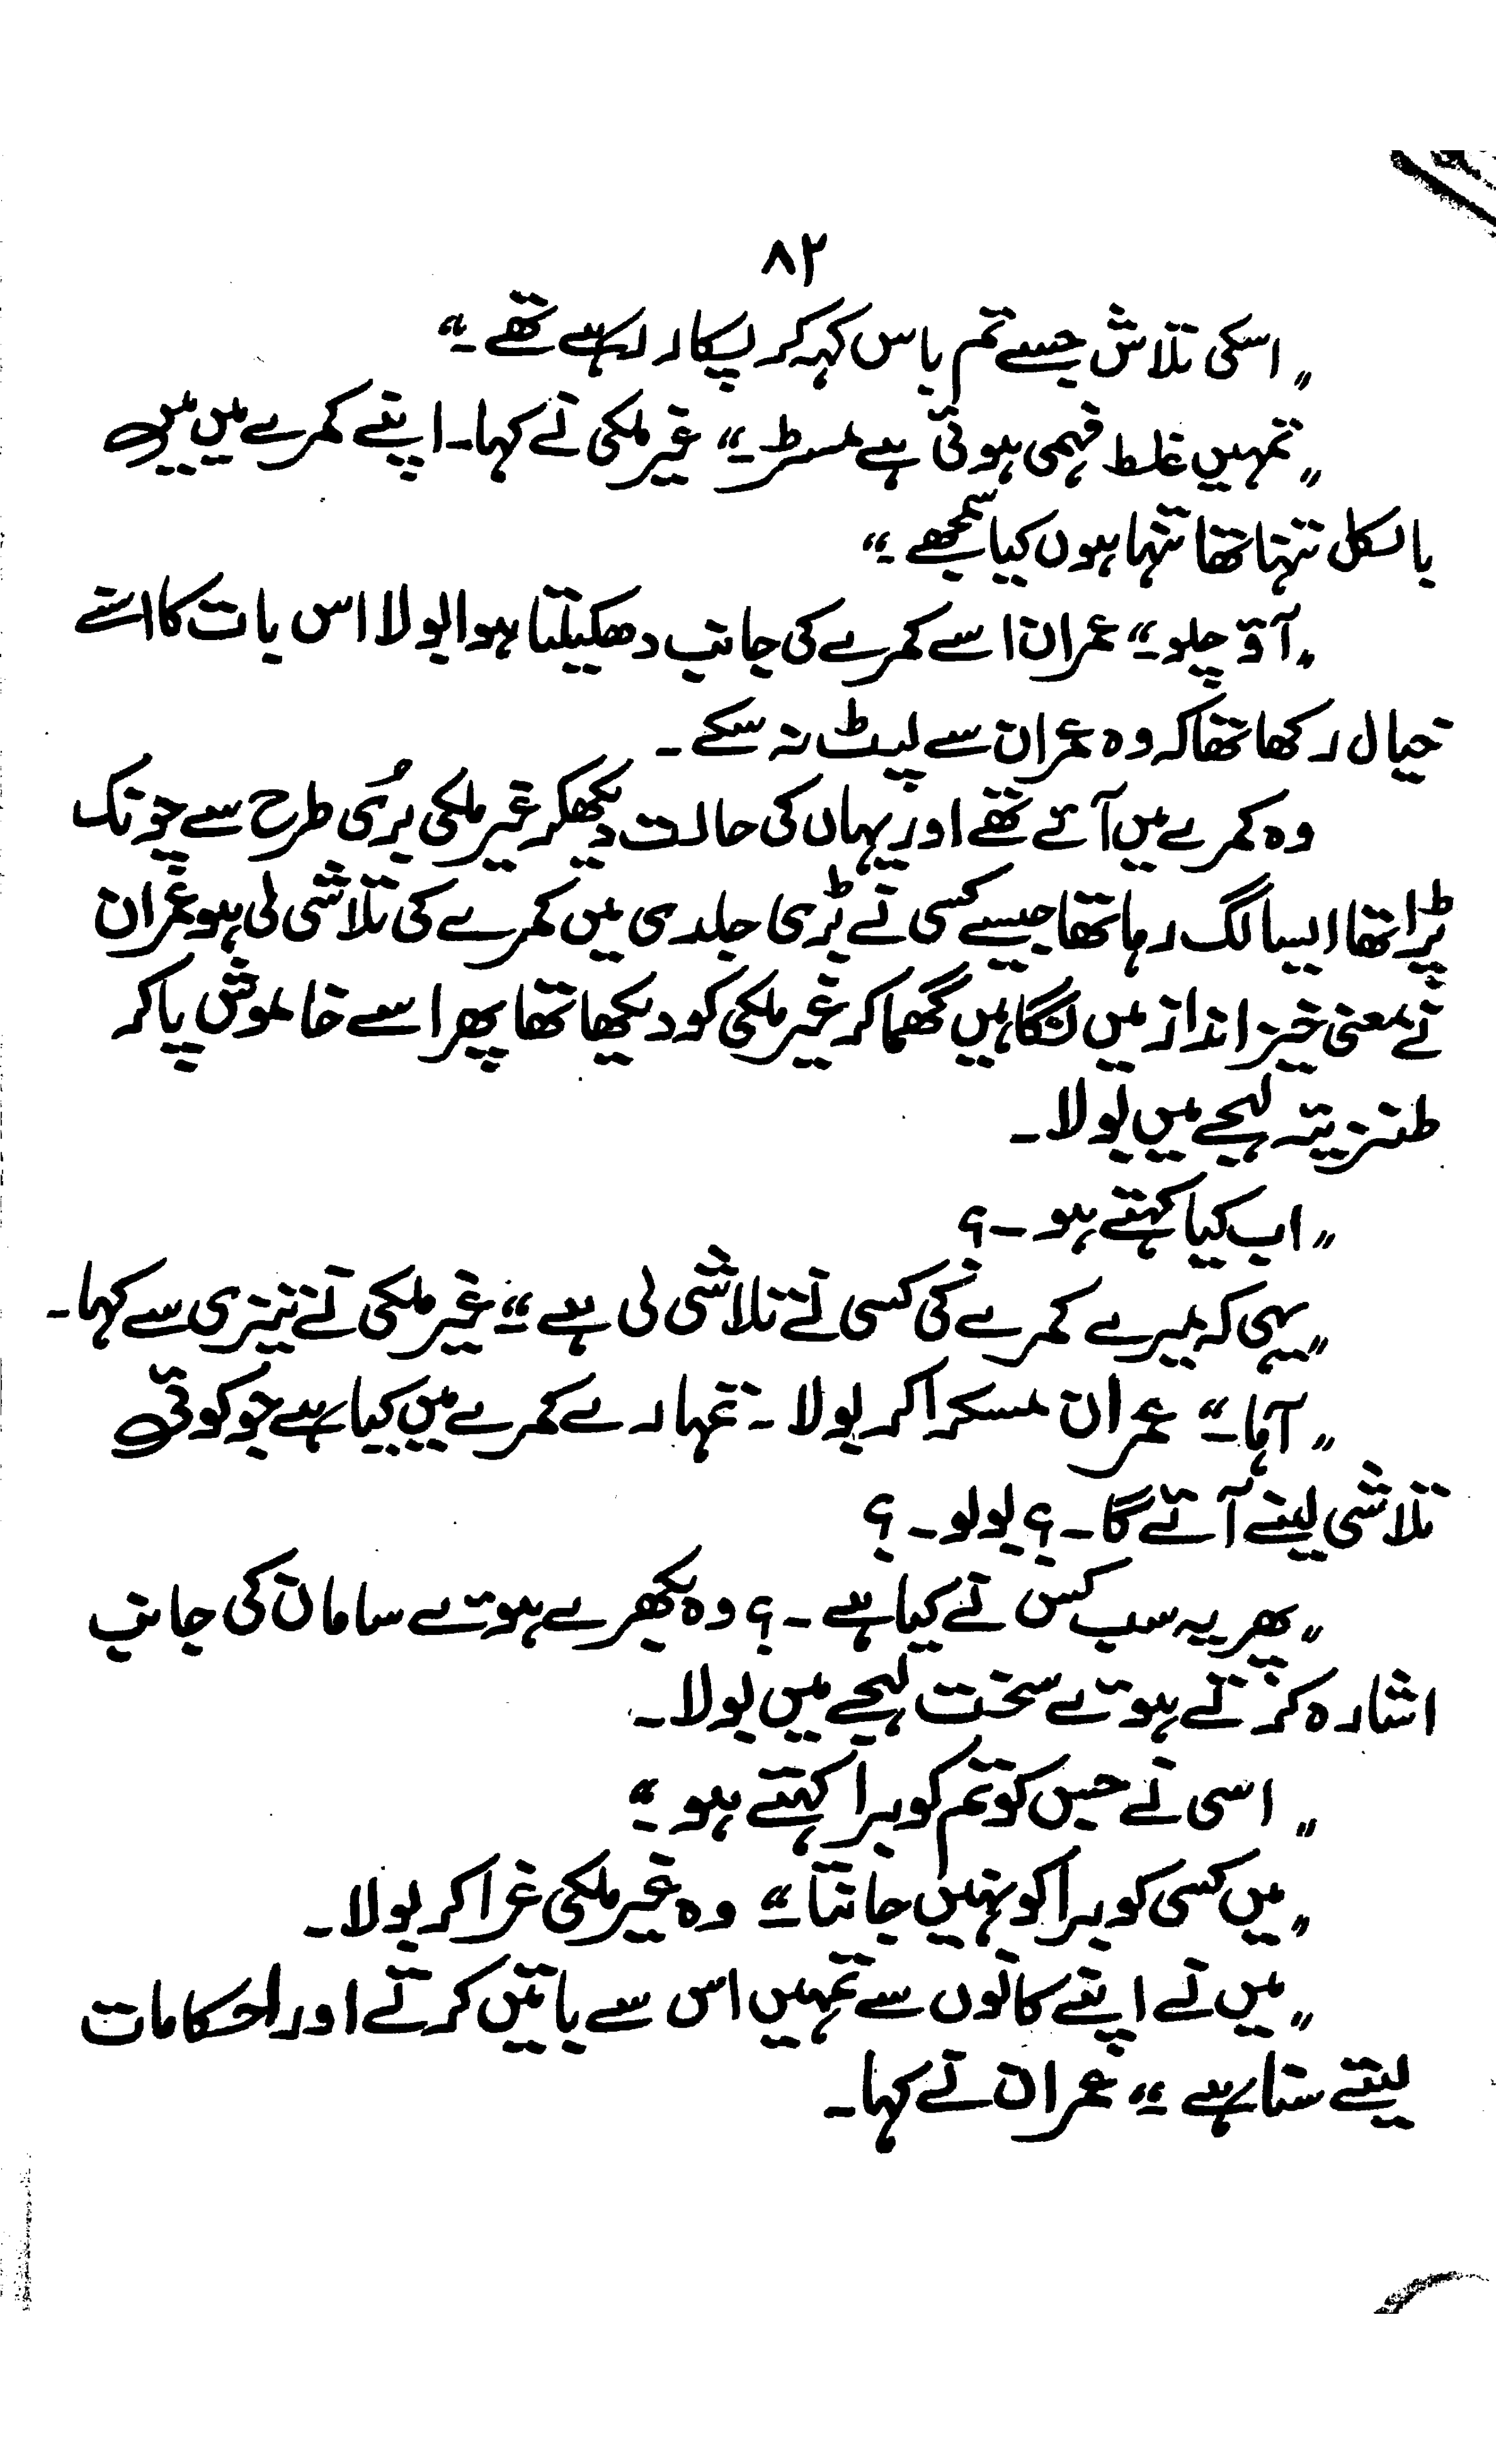 ۸۲
"اسکی تلاش جسے تم باس کہہ کر پکار رہے تھے۔"
"تمہیں غلط فہمی ہوئی ہے مسٹر۔" غیر ملکی نے کہا۔ اپنے کمرے میں میں
بالکل تنہا تھا تنہا ہوں کیا سمجھے۔"
"آؤ چلو۔" عمران اسے کمرے کی جانب دھکیلتا ہوا بولا اس بات کا اسے
خیال رکھا تھا کہ وہ عمران سے لپٹ نہ سکے۔
وہ کمرے میں آئے تھے اور یہاں کی حالت دیکھکر غیر ملکی بُری طرح سے چونک
پڑا تھا ایسا لگ رہا تھا جیسے کسی نے بڑی جلدی میں کمرے کی تلاشی لی ہو عمران
نے معنی خیز انداز میں نگاہیں گھما کر غیر ملکی کو دیکھا تھا پھر اسے خاموش پا کر
طنزیہ لہجے میں بولا۔
"اب کیا کہتے ہو۔؟
"یہی کہ میرے کمرے کی کسی نے تلاشی لی ہے۔" غیر ملکی نے تیزی سے کہا۔
"آہا۔" عمران مسکرا کر بولا۔ تمہارے کمرے میں کیا ہے جو کوئی
تلاشی لینے آئے گا۔؟ بولو۔؟
"پھر یہ سب کس نے کیا ہے۔؟ وہ بکھرے ہوئے سامان کی جانب
اشارہ کرتے ہوئے سخت لہجے میں بولا۔
"اسی نے جس کو تم کوبرا کہتے ہو۔"
"میں کسی کوبرا کو نہیں جانتا۔" وہ غیر ملکی غرا کر بولا۔
"میں نے اپنے کانوں سے تمہیں اس سے باتیں کرتے اور احکامات
لیتے سنا ہے۔" عمران نے کہا۔